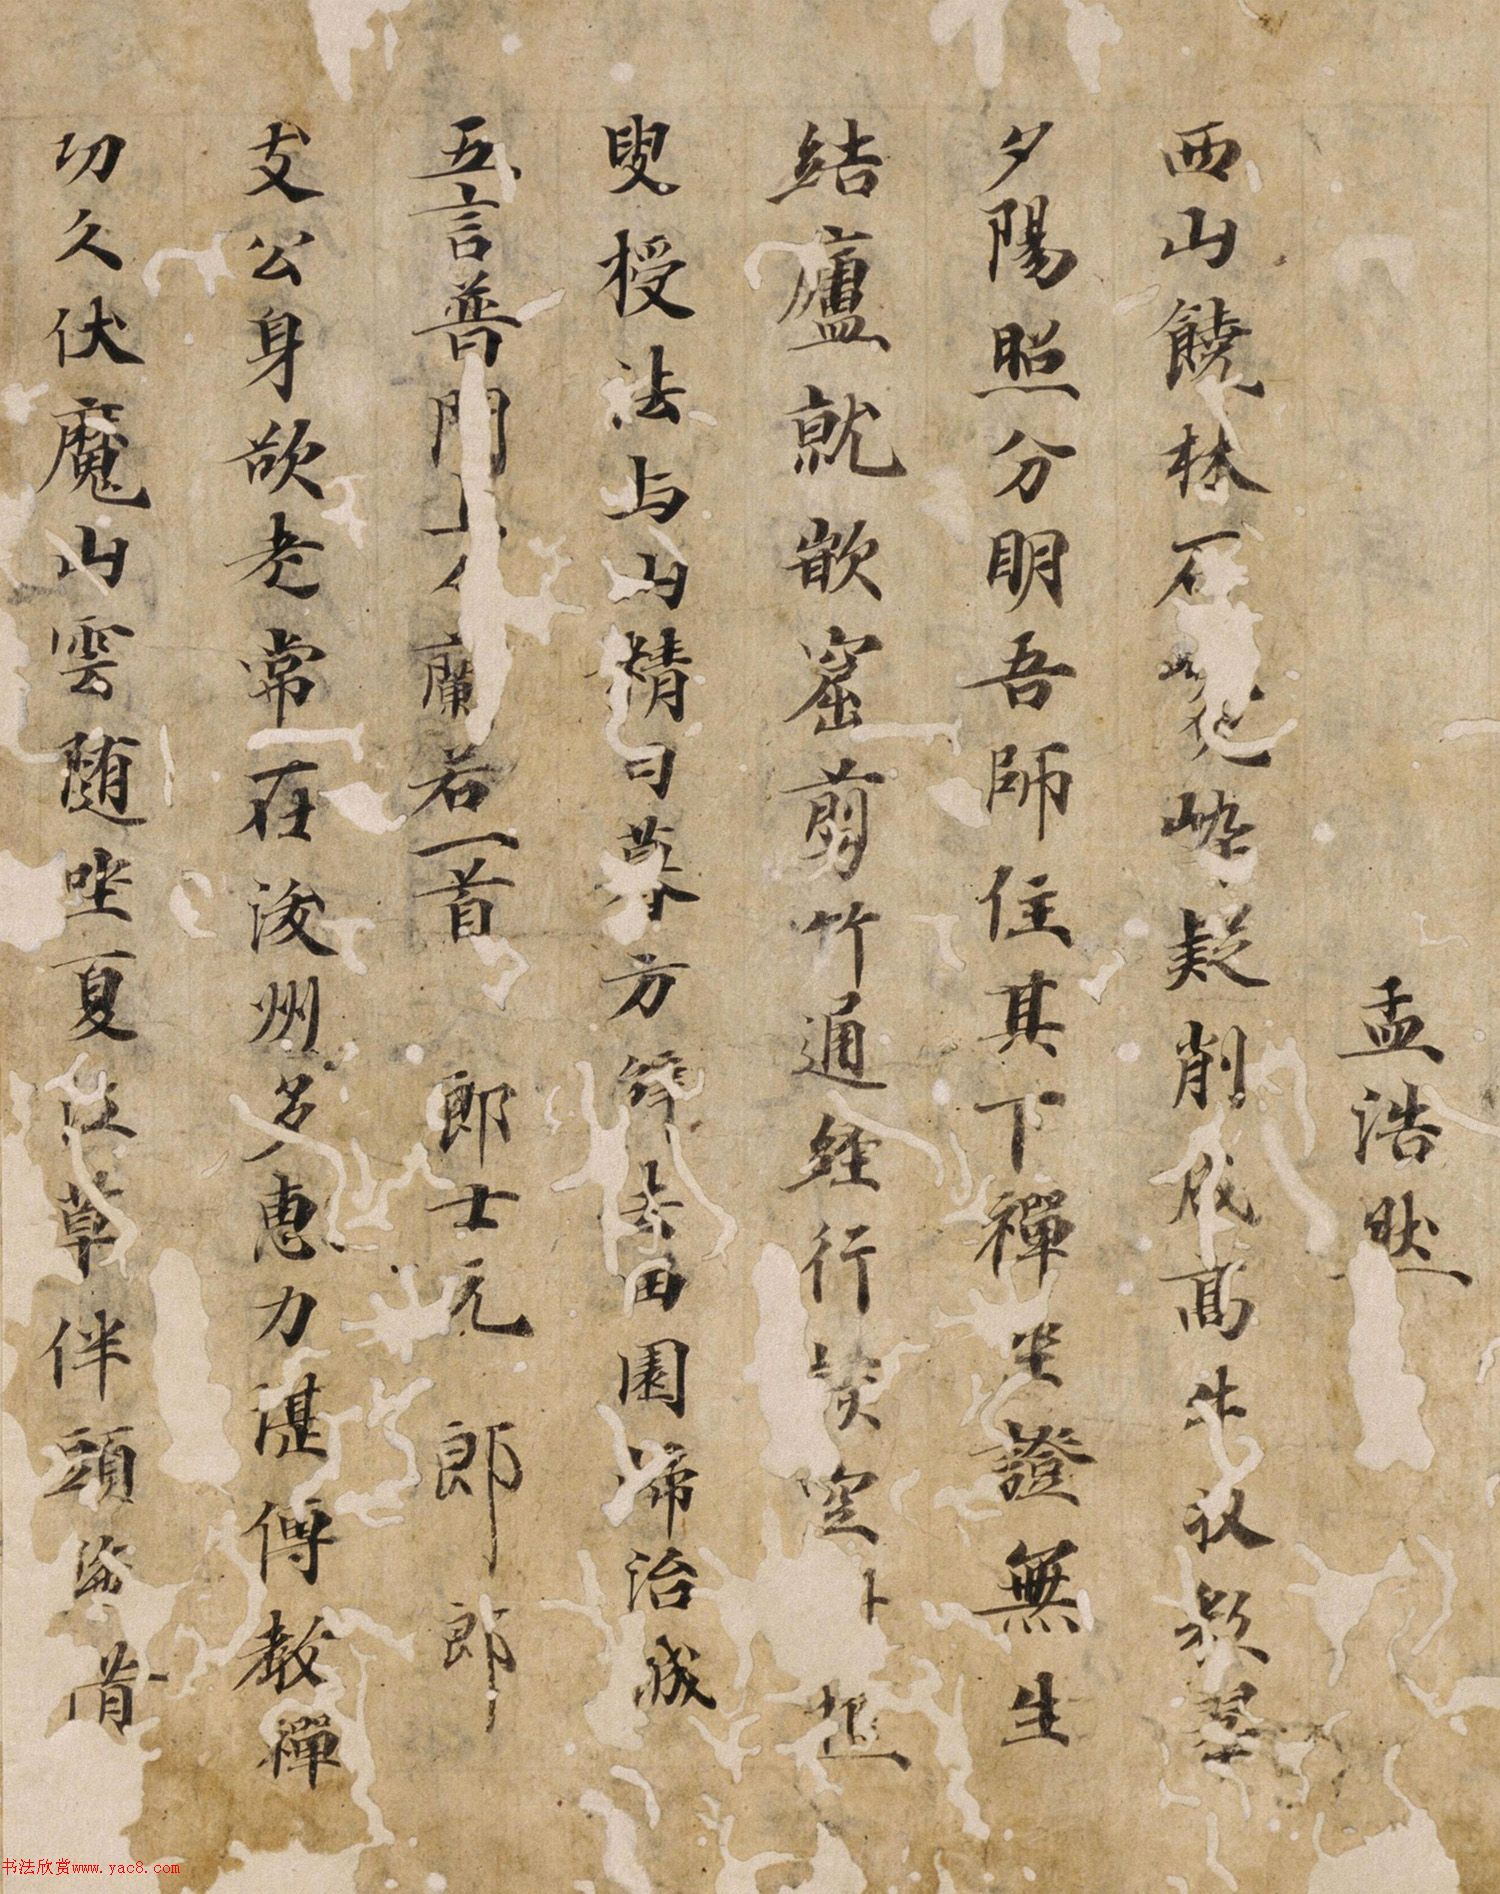 孟浩然
西山饒林石疑削成高牛
夕陽照分明吾師住其下禪坐證無生
結廬就嵌窟剪竹通經行空趣
叟授法与山精日暮方田園歸治成
五言普門上人蘭若一首 郎士元 郎郎
支公身欲老常在浚州多惠力湛傳教禪
功久伏魔山雲随坐夏草伴頭首
书法欣赏www.yac8.com